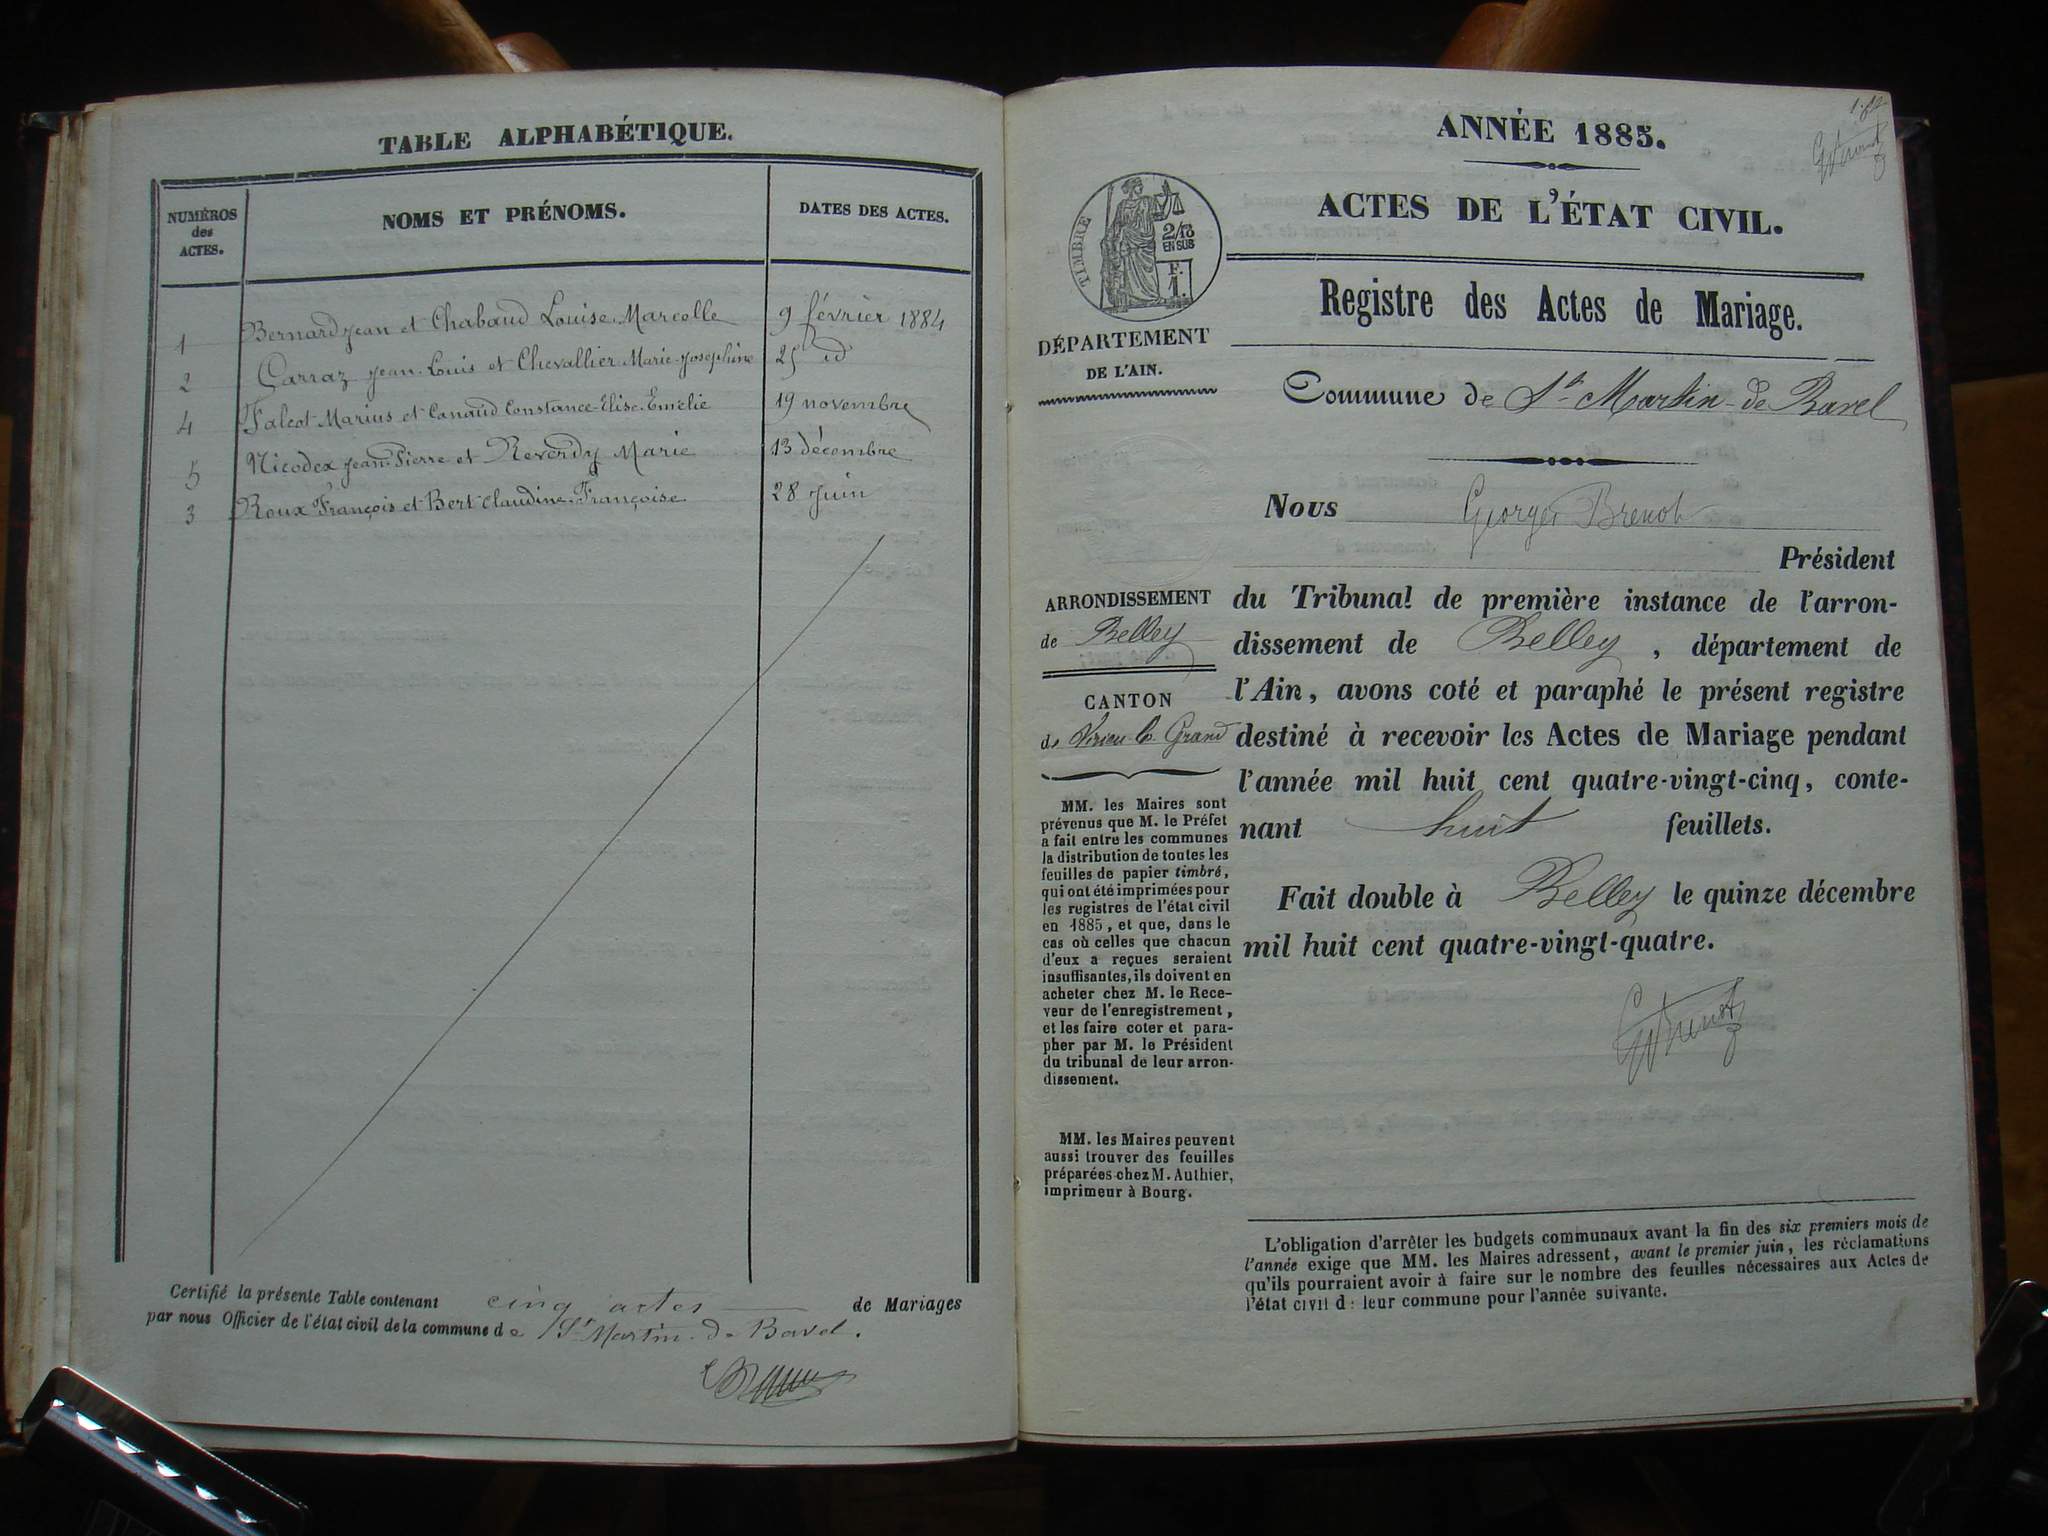 TABLE ALPHABÉTIQUE.
NUMÉROS
des
ACTES.
NOMS ET PRÉNOMS.
DATES DES ACTES.
1 Bernard Jean et Chabaud Louise Marcelle 9 février 1884
2 Carraz Jean-Louis et Chevallier Marie-Joséphine 25 id
4 Falcot Marius et Canaud Constance-Elise-Emélie 19 novembre
5 Nicodex Jean-Pierre et Reverdy Marie 13 décembre
3 Roux François et Bert Claudine-Françoise 28 Juin
Certifié la présente Table contenant cinq actes de Mariages
par nous Officier de l'état civil de la commune de St Martin-de-Bavel.
ANNÉE 1885.
ACTES DE L'ÉTAT CIVIL.
TIMBRE
2/10
EN SUS
F.
1.
DÉPARTEMENT
DE L'AIN.
Registre des Actes de Mariage.
Commune de St Martin-de-Bavel
Nous Georges Brenot
Président
du Tribunal de première instance de l'arron-
dissement de Belley, département de
l'Ain, avons coté et paraphé le présent registre
destiné à recevoir les Actes de Mariage pendant
l'année mil huit cent quatre-vingt-cinq, conte-
nant huit feuillets.
Fait double à Belley le quinze décembre
mil huit cent quatre-vingt-quatre.
ARRONDISSEMENT
de Belley
CANTON
de Virieu-le-Grand
MM. les Maires sont
prévenus que M. le Préfet
a fait entre les communes
la distribution de toutes les
feuilles de papier timbré,
qui ont été imprimées pour
les registres de l'état civil
en 1885, et que, dans le
cas où celles que chacun
d'eux a reçues seraient
insuffisantes, ils doivent en
acheter chez M. le Rece-
veur de l'enregistrement,
et les faire coter et para-
pher par M. le Président
du tribunal de leur arron-
dissement.
MM. les Maires peuvent
aussi trouver des feuilles
préparées chez M. Authier,
imprimeur à Bourg.
L'obligation d'arrêter les budgets communaux avant la fin des six premiers mois de
l'année exige que MM. les Maires adressent, avant le premier juin, les réclamations
qu'ils pourraient avoir à faire sur le nombre des feuilles nécessaires aux Actes de
l'état civil d: leur commune pour l'année suivante.